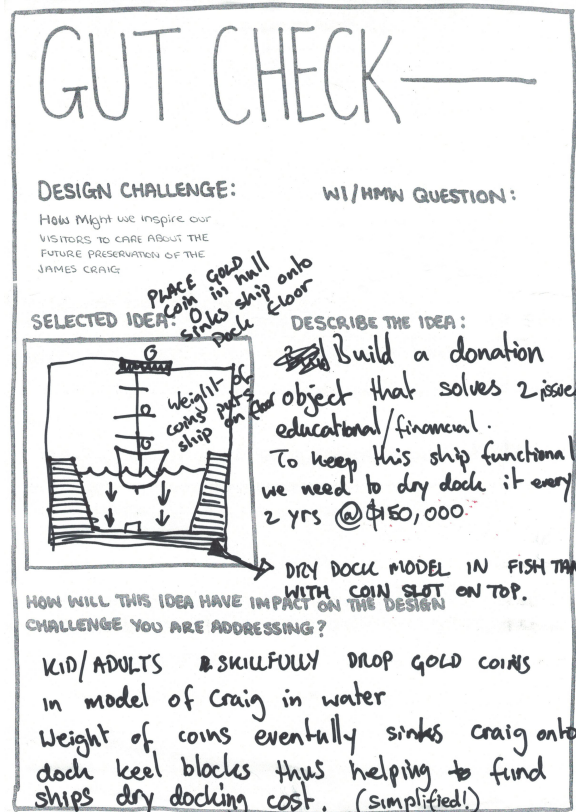 GUT CHECK
DESIGN CHALLENGE:
How Might we inspire our
VISITORS TO CARE ABOUT THE
FUTURE PRESERVATION OF THE
JAMES CRAIG
WI/HMW QUESTION:
SELECTED IDEA:
PLACE GOLD
coin in hull
sinks ship onto
Dock floor
Weight of
coins puts
ship on floor
DESCRIBE THE IDEA:
Build a donation
object that solves 2 issue
educational/financial.
To keep this ship functional
we need to dry dock it every
2 yrs @ $150,000
DRY DOCK MODEL IN FISH TAN
WITH COIN SLOT ON TOP.
HOW WILL THIS IDEA HAVE IMPACT ON THE DESIGN
CHALLENGE YOU ARE ADDRESSING?
KID/ADULTS SKILLFULLY DROP GOLD COINS
in model of Craig in water
Weight of coins eventully sinks Craig onto
dock keel blocks thus helping to fund
ships dry docking cost. (simplified!)